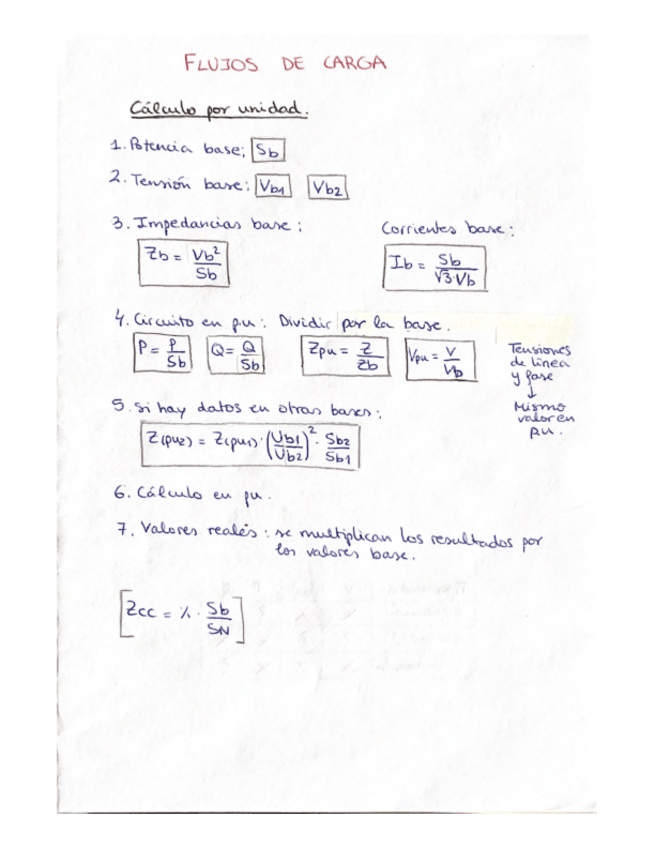 FLUJOS DE CARGA
Cálculo por unidad.
1. Potencia base; Sb
2. Tensión base: Vb1 Vb2
3. Impedancias base: Corrientes base:
Zb = Vb²/Sb Ib = Sb/√3·Vb
4. Circuito en p.u: Dividir por la base.
P = P/Sb Q = Q/Sb Zpu = Z/Zb Vpu = V/Vb
Tensiones
de línea
y fase
↓
Mismo
valor en
p.u.
5. Si hay datos en otras bases:
Z(pu2) = Z(pu1)·(Ub1/Ub2)²·Sb2/Sb1
6. Cálculo en pu.
7. Valores reales: se multiplican los resultados por
los valores base.
[Zcc = %·Sb/SN]